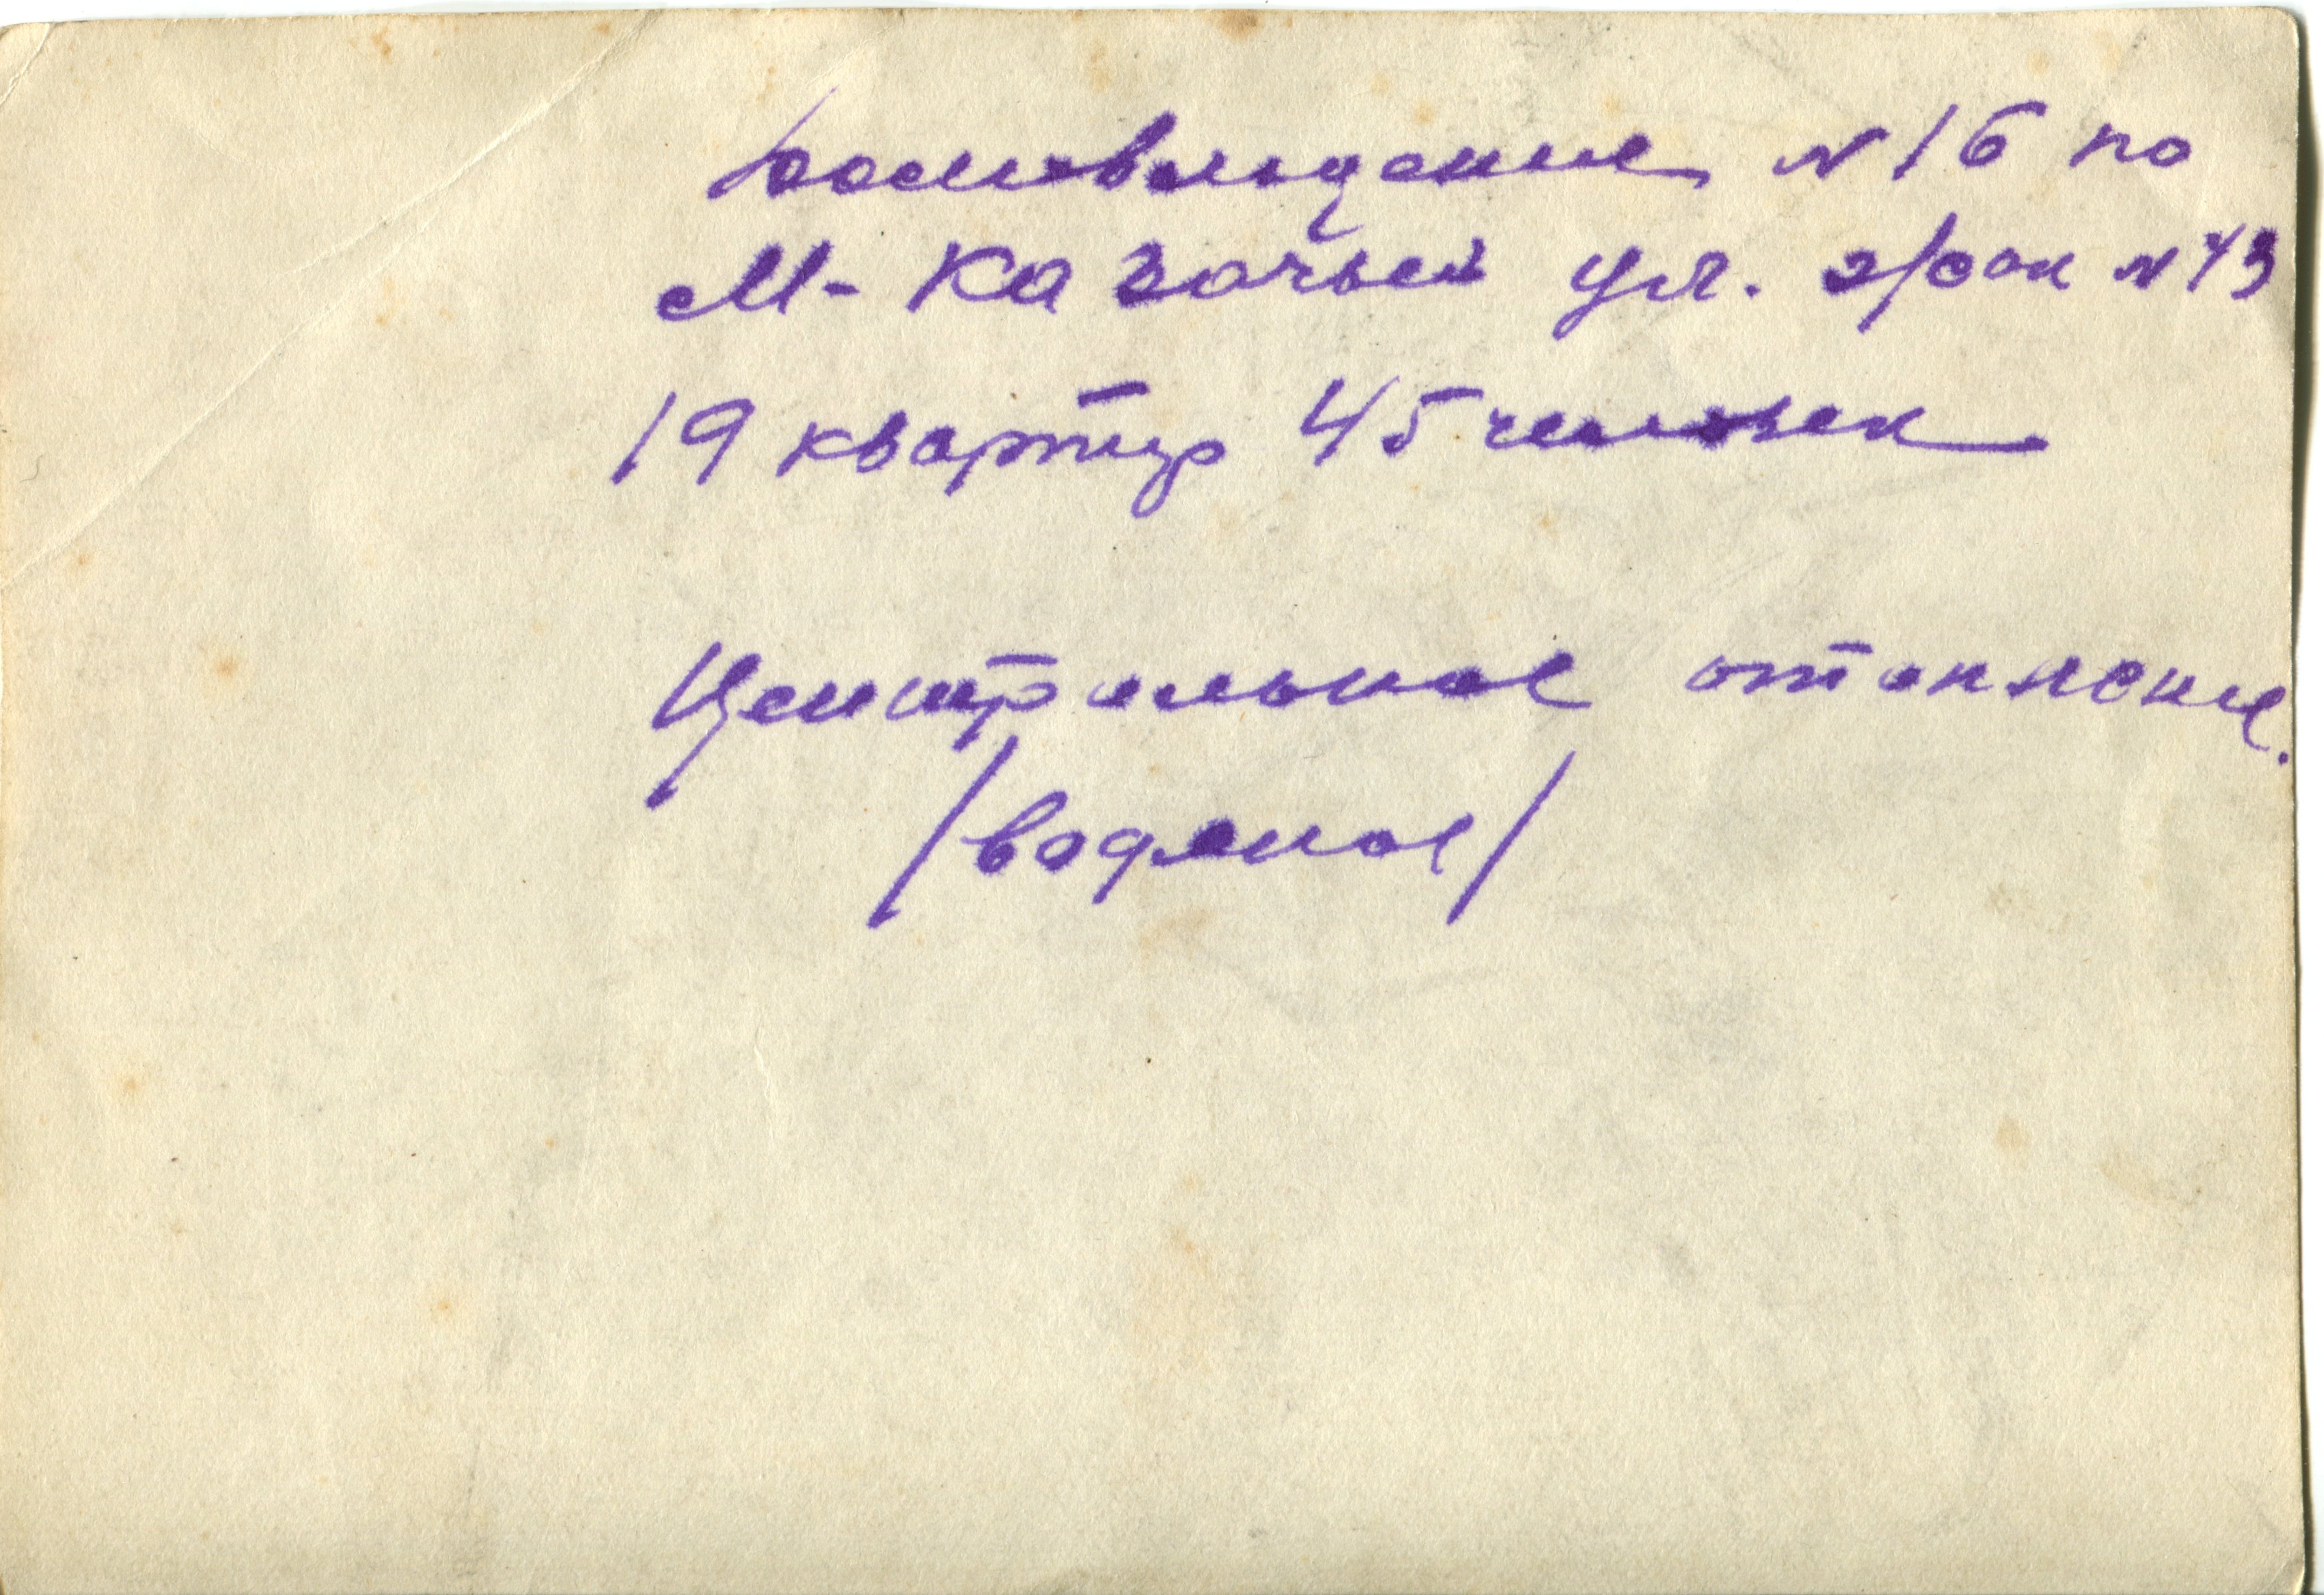 Домовладение N 16 по
М-Казачьей ул. N 43
19 квартир 45 человек
Центральное отопление.
/водяное/